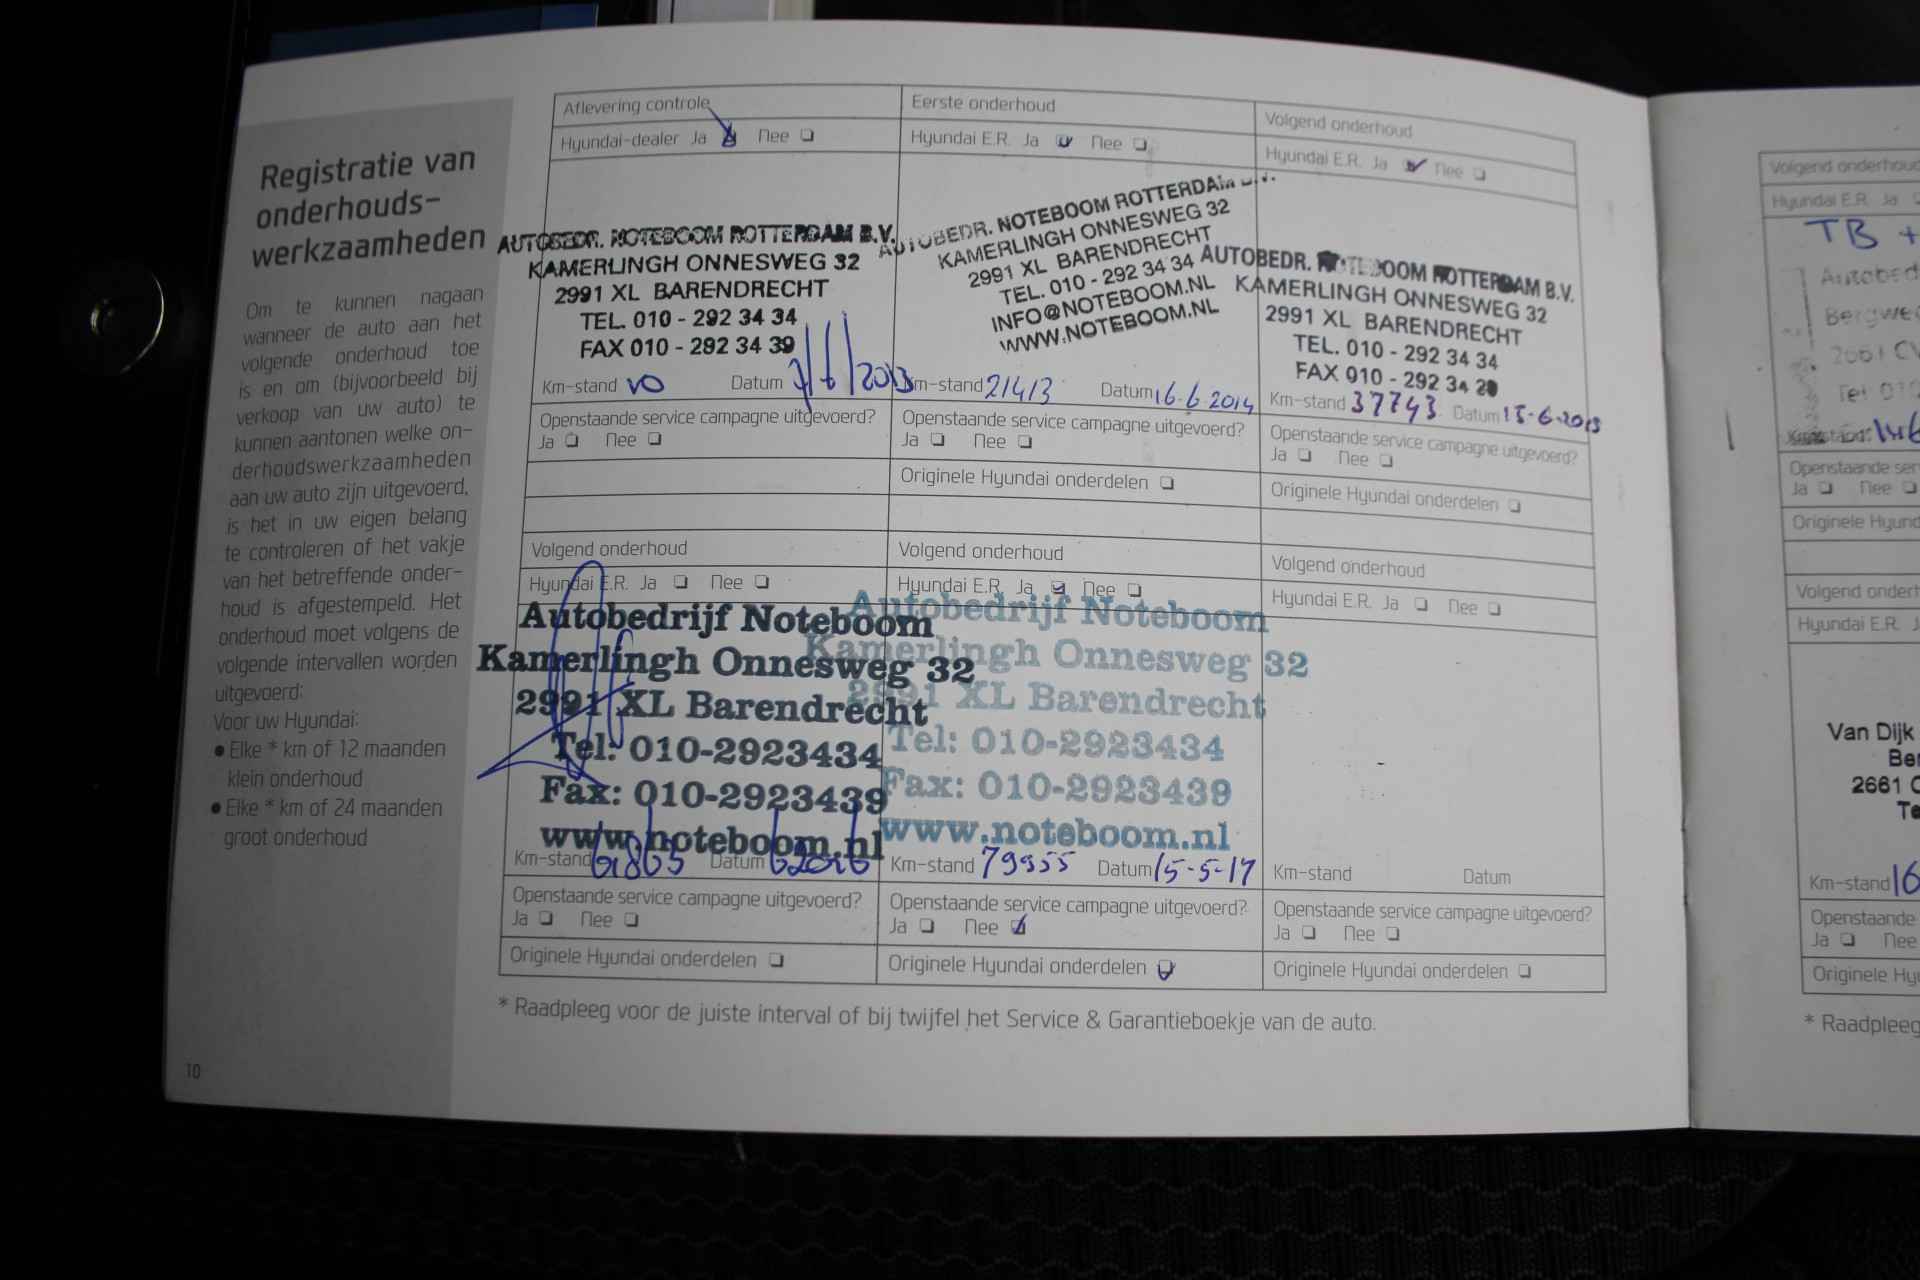 Registratie van
onderhouds-
werkzaamheden
Om te kunnen nagaan
wanneer de auto aan het
volgende onderhoud toe
is en om (bijvoorbeeld bij
verkoop van uw auto) te
kunnen aantonen welke on-
derhoudswerkzaamheden
aan uw auto zijn uitgevoerd,
is het in uw eigen belang
te controleren of het vakje
van het betreffende onder-
houd is afgestempeld. Het
onderhoud moet volgens de
volgende intervallen worden
uitgevoerd:
Voor uw Hyundai:
● Elke * km of 12 maanden
klein onderhoud
● Elke * km of 24 maanden
groot onderhoud
10
Aflevering controle
Hyundai-dealer Ja Nee
AUTOBEDR. NOTEBOOM ROTTERDAM B.V.
KAMERLINGH ONNESWEG 32
2991 XL BARENDRECHT
TEL. 010 - 292 34 34
FAX 010 - 292 34 39
Km-stand 10 Datum 7/6/2013
Openstaande service campagne uitgevoerd?
Ja Nee
Eerste onderhoud
Hyundai E.R. Ja Nee
AUTOBEDR. NOTEBOOM ROTTERDAM B.V.
KAMERLINGH ONNESWEG 32
2991 XL BARENDRECHT
TEL. 010 - 292 34 34
INFO@NOTEBOOM.NL
WWW.NOTEBOOM.NL
Km-stand 21413 Datum 16.6.2014
Openstaande service campagne uitgevoerd?
Ja Nee
Originele Hyundai onderdelen
Volgend onderhoud
Hyundai E.R. Ja Nee
AUTOBEDR. NOTEBOOM ROTTERDAM B.V.
KAMERLINGH ONNESWEG 32
2991 XL BARENDRECHT
TEL. 010 - 292 34 34
FAX 010 - 292 34
Km-stand 37743 Datum
Openstaande service campagne uitgevoerd?
Ja Nee
Originele Hyundai onderdelen
Volgend onderhoud
Hyundai E.R. Ja Nee
Autobedrijf Noteboom
Kamerlingh Onnesweg 32
2991 XL Barendrecht
Tel: 010-2923434
Fax: 010-2923439
www.noteboom.nl
Km-stand 61865 Datum
Openstaande service campagne uitgevoerd?
Ja Nee
Originele Hyundai onderdelen
Volgend onderhoud
Hyundai E.R. Ja Nee
Autobedrijf Noteboom
Kamerlingh Onnesweg 32
2991 XL Barendrecht
Tel: 010-2923434
Fax: 010-2923439
www.noteboom.nl
Km-stand 79955 Datum 15-5-17
Openstaande service campagne uitgevoerd?
Ja Nee
Originele Hyundai onderdelen
Volgend onderhoud
Hyundai E.R. Ja Nee
Km-stand Datum
Openstaande service campagne uitgevoerd?
Ja Nee
Originele Hyundai onderdelen
* Raadpleeg voor de juiste interval of bij twijfel het Service & Garantieboekje van de auto.
Volgend onderhoud
Hyundai E.R. Ja
TB +
Autobed
Bergweg
2661 CV
Tel 010
Openstaande ser
Ja Nee
Originele Hyund
Volgend onderh
Hyundai E.R. J
Van Dijk
Ber
2661 C
Te
Km-stand 16
Openstaande
Ja Nee
Originele Hyu
* Raadpleeg